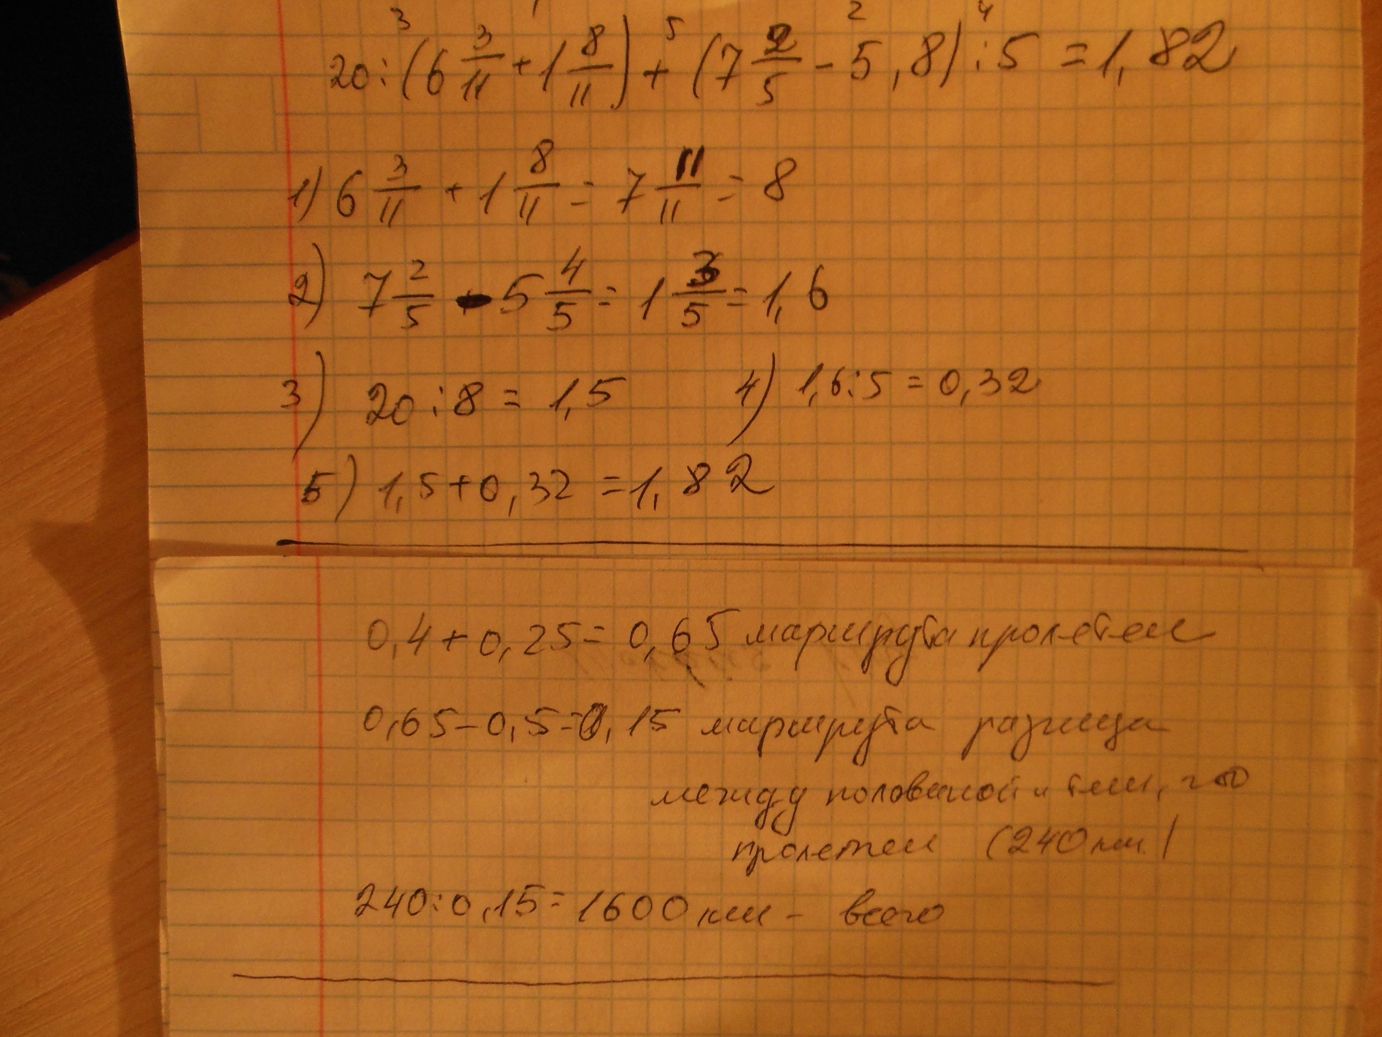 20 : (6 3/11 + 1 8/11) + (7 2/5 - 5,8) : 5 = 1,82
1) 6 3/11 + 1 8/11 = 7 11/11 = 8
2) 7 2/5 - 5 4/5 = 1 3/5 = 1,6
3) 20 : 8 = 1,5 4) 1,6 : 5 = 0,32
5) 1,5 + 0,32 = 1,82
0,4 + 0,25 = 0,65 маршрута пролетел
0,65 - 0,5 = 0,15 маршрута разница
между половиной и тем, что
пролетел (240 км)
240 : 0,15 = 1600 км - всего